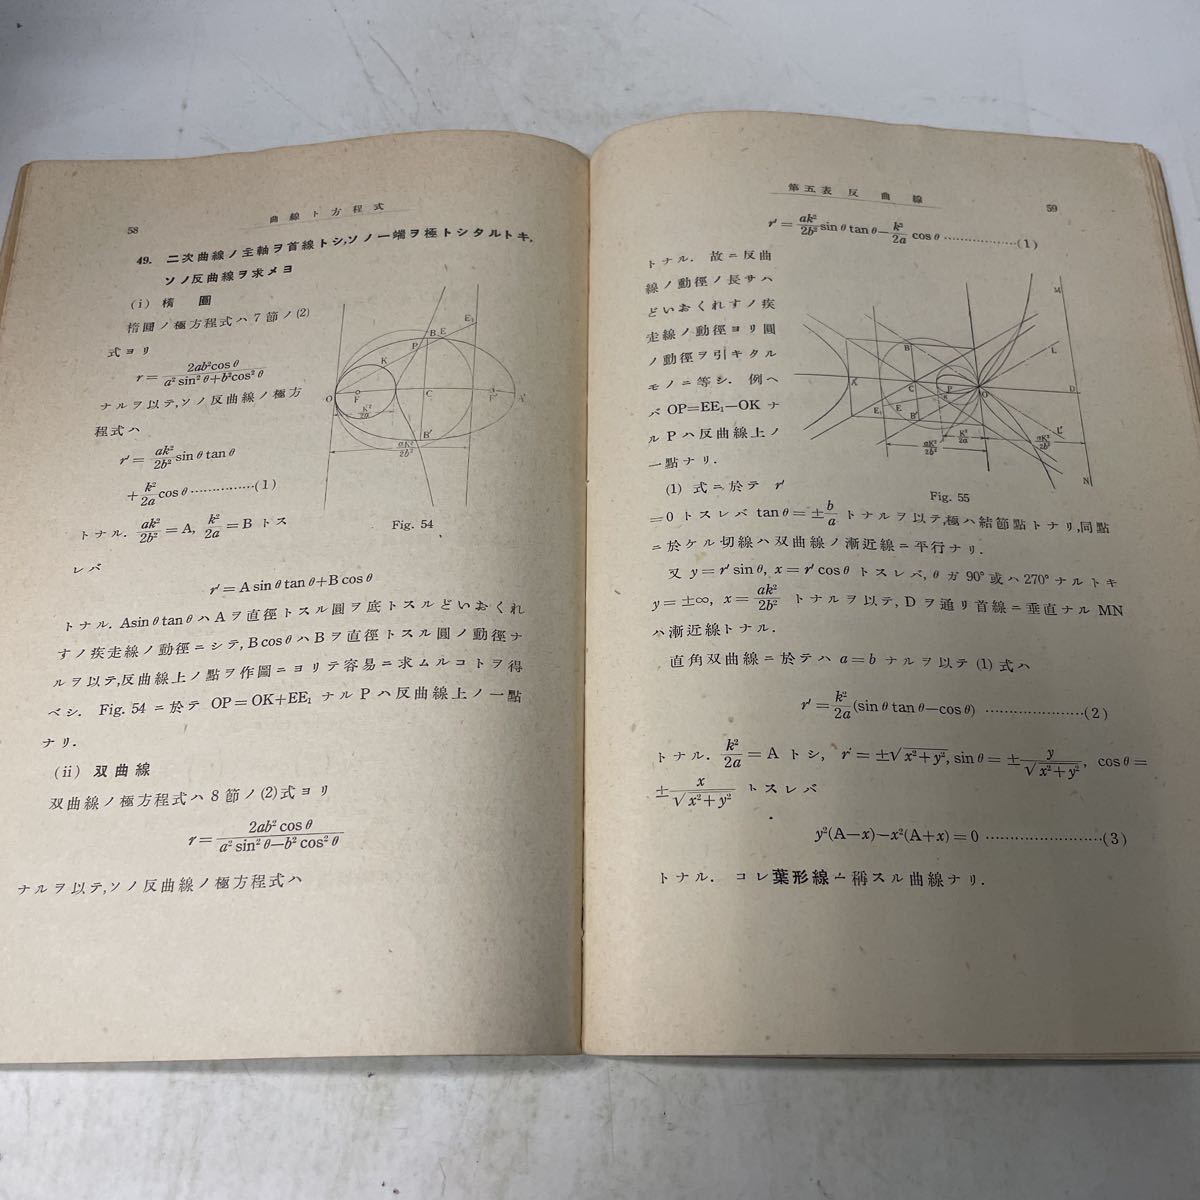 58
曲線ト方程式
49. 二次曲線ノ主軸ヲ首線トシ,ソノ一端ヲ極トシタルトキ,
ソノ反曲線ヲ求メヨ
(i) 楕圓
楕圓ノ極方程式ハ7節ノ(2)
式ヨリ
r = 2ab²cosθ / a²sin²θ+b²cos²θ
ナルヲ以テ,ソノ反曲線ノ極方
程式ハ
r' = ak²/2b² sinθtanθ
+ k²/2a cosθ……………(1)
トナル. ak²/2b² = A, k²/2a = B トス
レバ
r' = A sinθtanθ+B cosθ
トナル. Asinθtanθ ハ A ヲ直徑トスル圓ヲ底トスルどいおくれ
すノ疾走線ノ動徑ニシテ, B cosθ ハ B ヲ直徑トスル圓ノ動徑ナ
ルヲ以テ,反曲線上ノ點ヲ作圖ニヨリテ容易ニ求ムルコトヲ得
ベシ. Fig. 54 ニ於テ OP=OK+EE₁ ナル P ハ反曲線上ノ一點
ナリ.
(ii) 双曲線
双曲線ノ極方程式ハ8節ノ(2)式ヨリ
r = 2ab²cosθ / a²sin²θ−b²cos²θ
ナルヲ以テ,ソノ反曲線ノ極方程式ハ
B E E₁
P
K
O F C F' A'
K²/2a
B'
aK²/2b²
Fig. 54
第五表反曲線
59
r' = ak²/2b² sinθtanθ − k²/2a cosθ ………………(1)
トナル. 故ニ反曲
線ノ動徑ノ長サハ
どいおくれすノ疾
走線ノ動徑ヨリ圓
ノ動徑ヲ引キタル
モノニ等シ. 例ヘ
バ OP=EE₁−OK ナ
ル P ハ反曲線上ノ
一點ナリ.
M
B L
A' C P O D
E₁ E B'
L'
aK²/2b² K²/2a aK²/2b²
N
Fig. 55
(1) 式ニ於テ r'
=0 トスレバ tanθ=± b/a トナルヲ以テ,極ハ結節點トナリ,同點
ニ於ケル切線ハ双曲線ノ漸近線ニ平行ナリ.
又 y=r'sinθ, x=r'cosθ トスレバ, θ ガ 90° 或ハ 270° ナルトキ
y=±∞, x= ak²/2b² トナルヲ以テ, D ヲ通リ首線ニ垂直ナル MN
ハ漸近線トナル.
直角双曲線ニ於テハ a=b ナルヲ以テ (1) 式ハ
r' = k²/2a (sinθtanθ−cosθ) …………………(2)
トナル. k²/2a = A トシ, r' = ±√x²+y², sinθ = ± y/√x²+y², cosθ =
± x/√x²+y² トスレバ
y²(A−x)−x²(A+x)=0 ……………………(3)
トナル. コレ葉形線ト稱スル曲線ナリ.